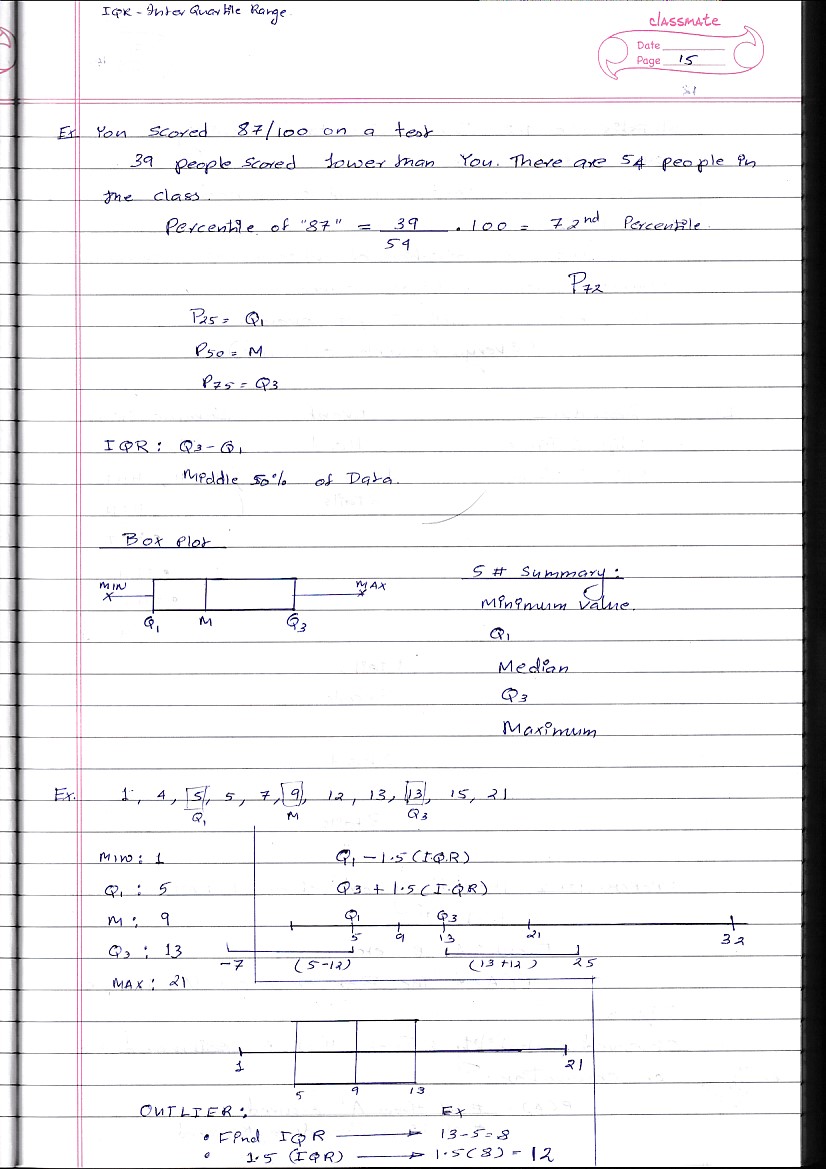 IQR - Inter Quartile Range
classmate
Date
Page 15
Ex You scored 87/100 on a test
39 people scored lower than You. There are 54 people in
the class.
Percentile of "87" = 39/54 . 100 = 72nd Percentile.
P72
P25 = Q1
P50 = M
P75 = Q3
IQR : Q3 - Q1
Middle 50% of Data.
Box Plot
MIN MAX
Q1 M Q3
5 # Summary :
Minimum Value.
Q1
Median
Q3
Maximum
Ex. 1, 4, 5, 5, 7, 9, 12, 13, 13, 15, 21
Q1 M Q3
MIN : 1
Q1 : 5
M : 9
Q3 : 13
MAX : 21
Q1 - 1.5 (IQR)
Q3 + 1.5 (IQR)
Q1 Q3
5 9 13 21 32
-7 (5-12) (13+12) 25
1 21
5 9 13
OUTLIER : Ex
• Find IQR → 13-5=8
• 1.5 (IQR) → 1.5(8) = 12